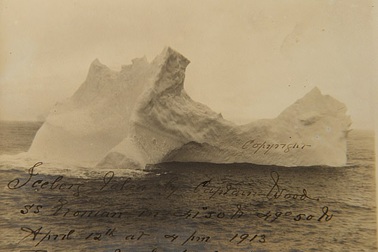 Copyright
Iceberg Taken by Captain Wood
SS Etonian in 41°50 W 49°50 W
April 12th at 4 pm 1912